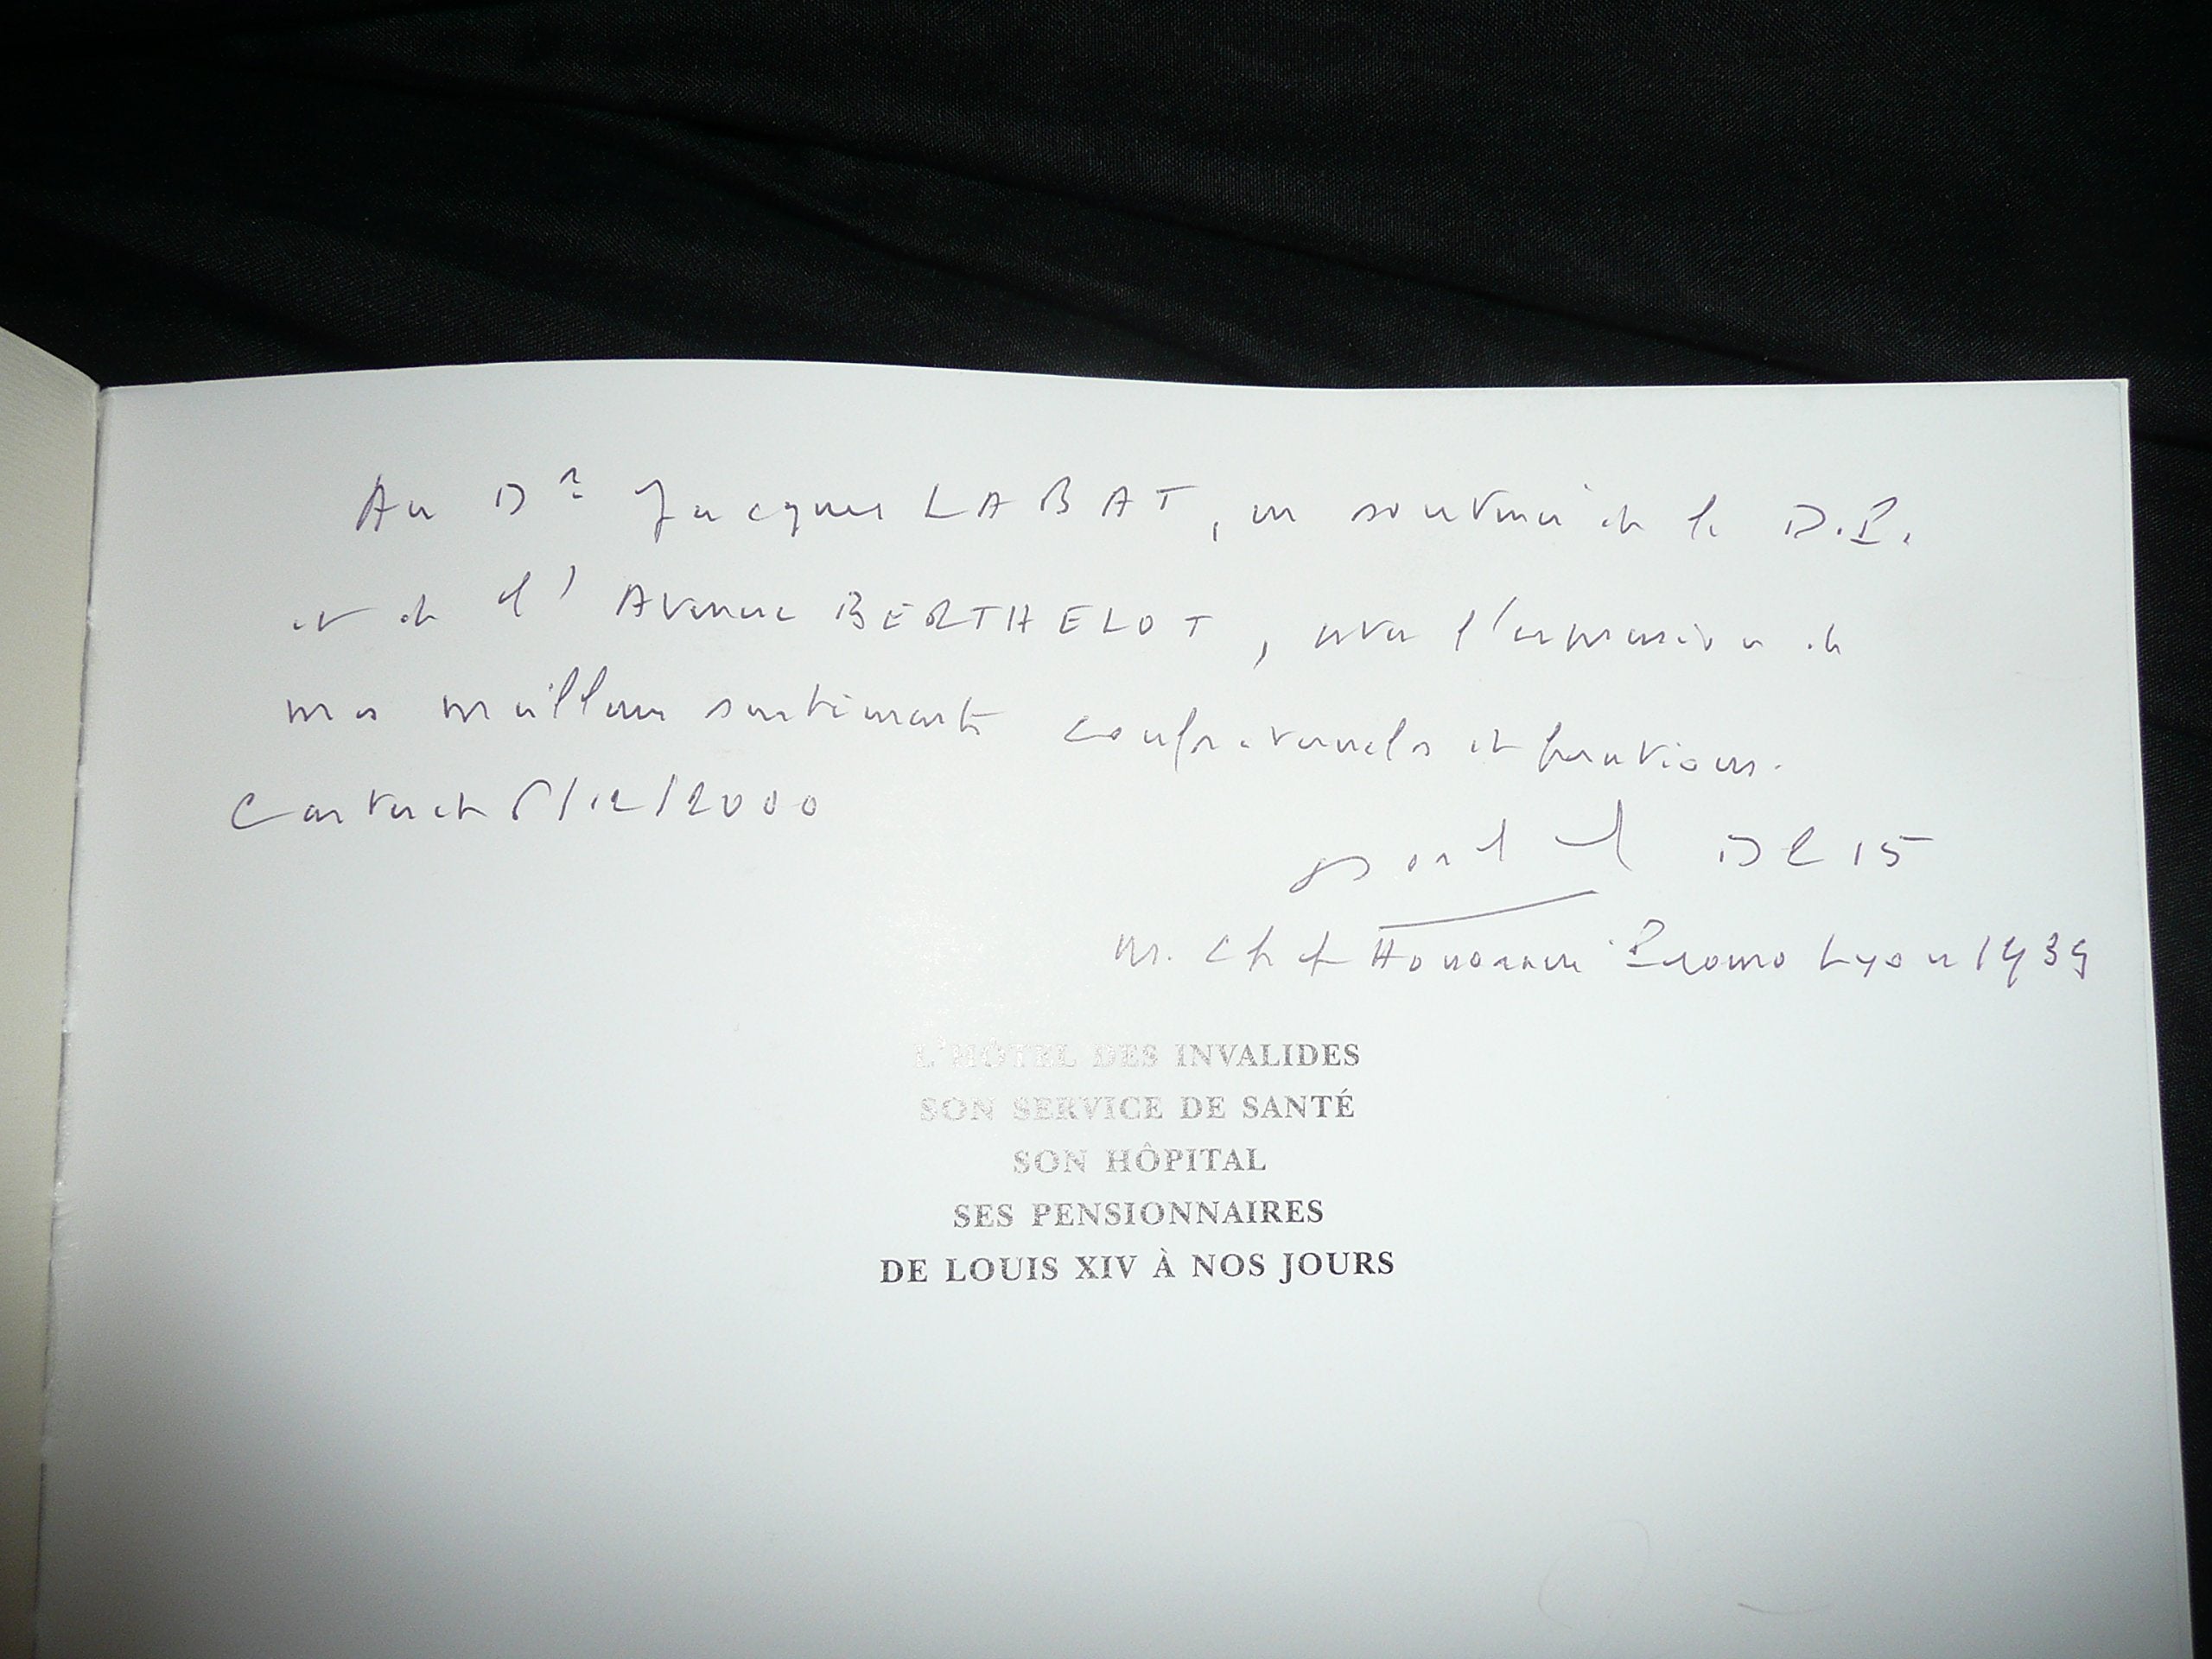 Au Dr Jacques LABAT, en souvenir de la D.P.
et de l'Avenue BERTHELOT, avec l'expression de
mes meilleurs sentiments confraternels et
Castres le /12/2000
DC 15
M. Chef Honoraire Promo Lyon 1939
L'HÔTEL DES INVALIDES
SON SERVICE DE SANTÉ
SON HÔPITAL
SES PENSIONNAIRES
DE LOUIS XIV À NOS JOURS